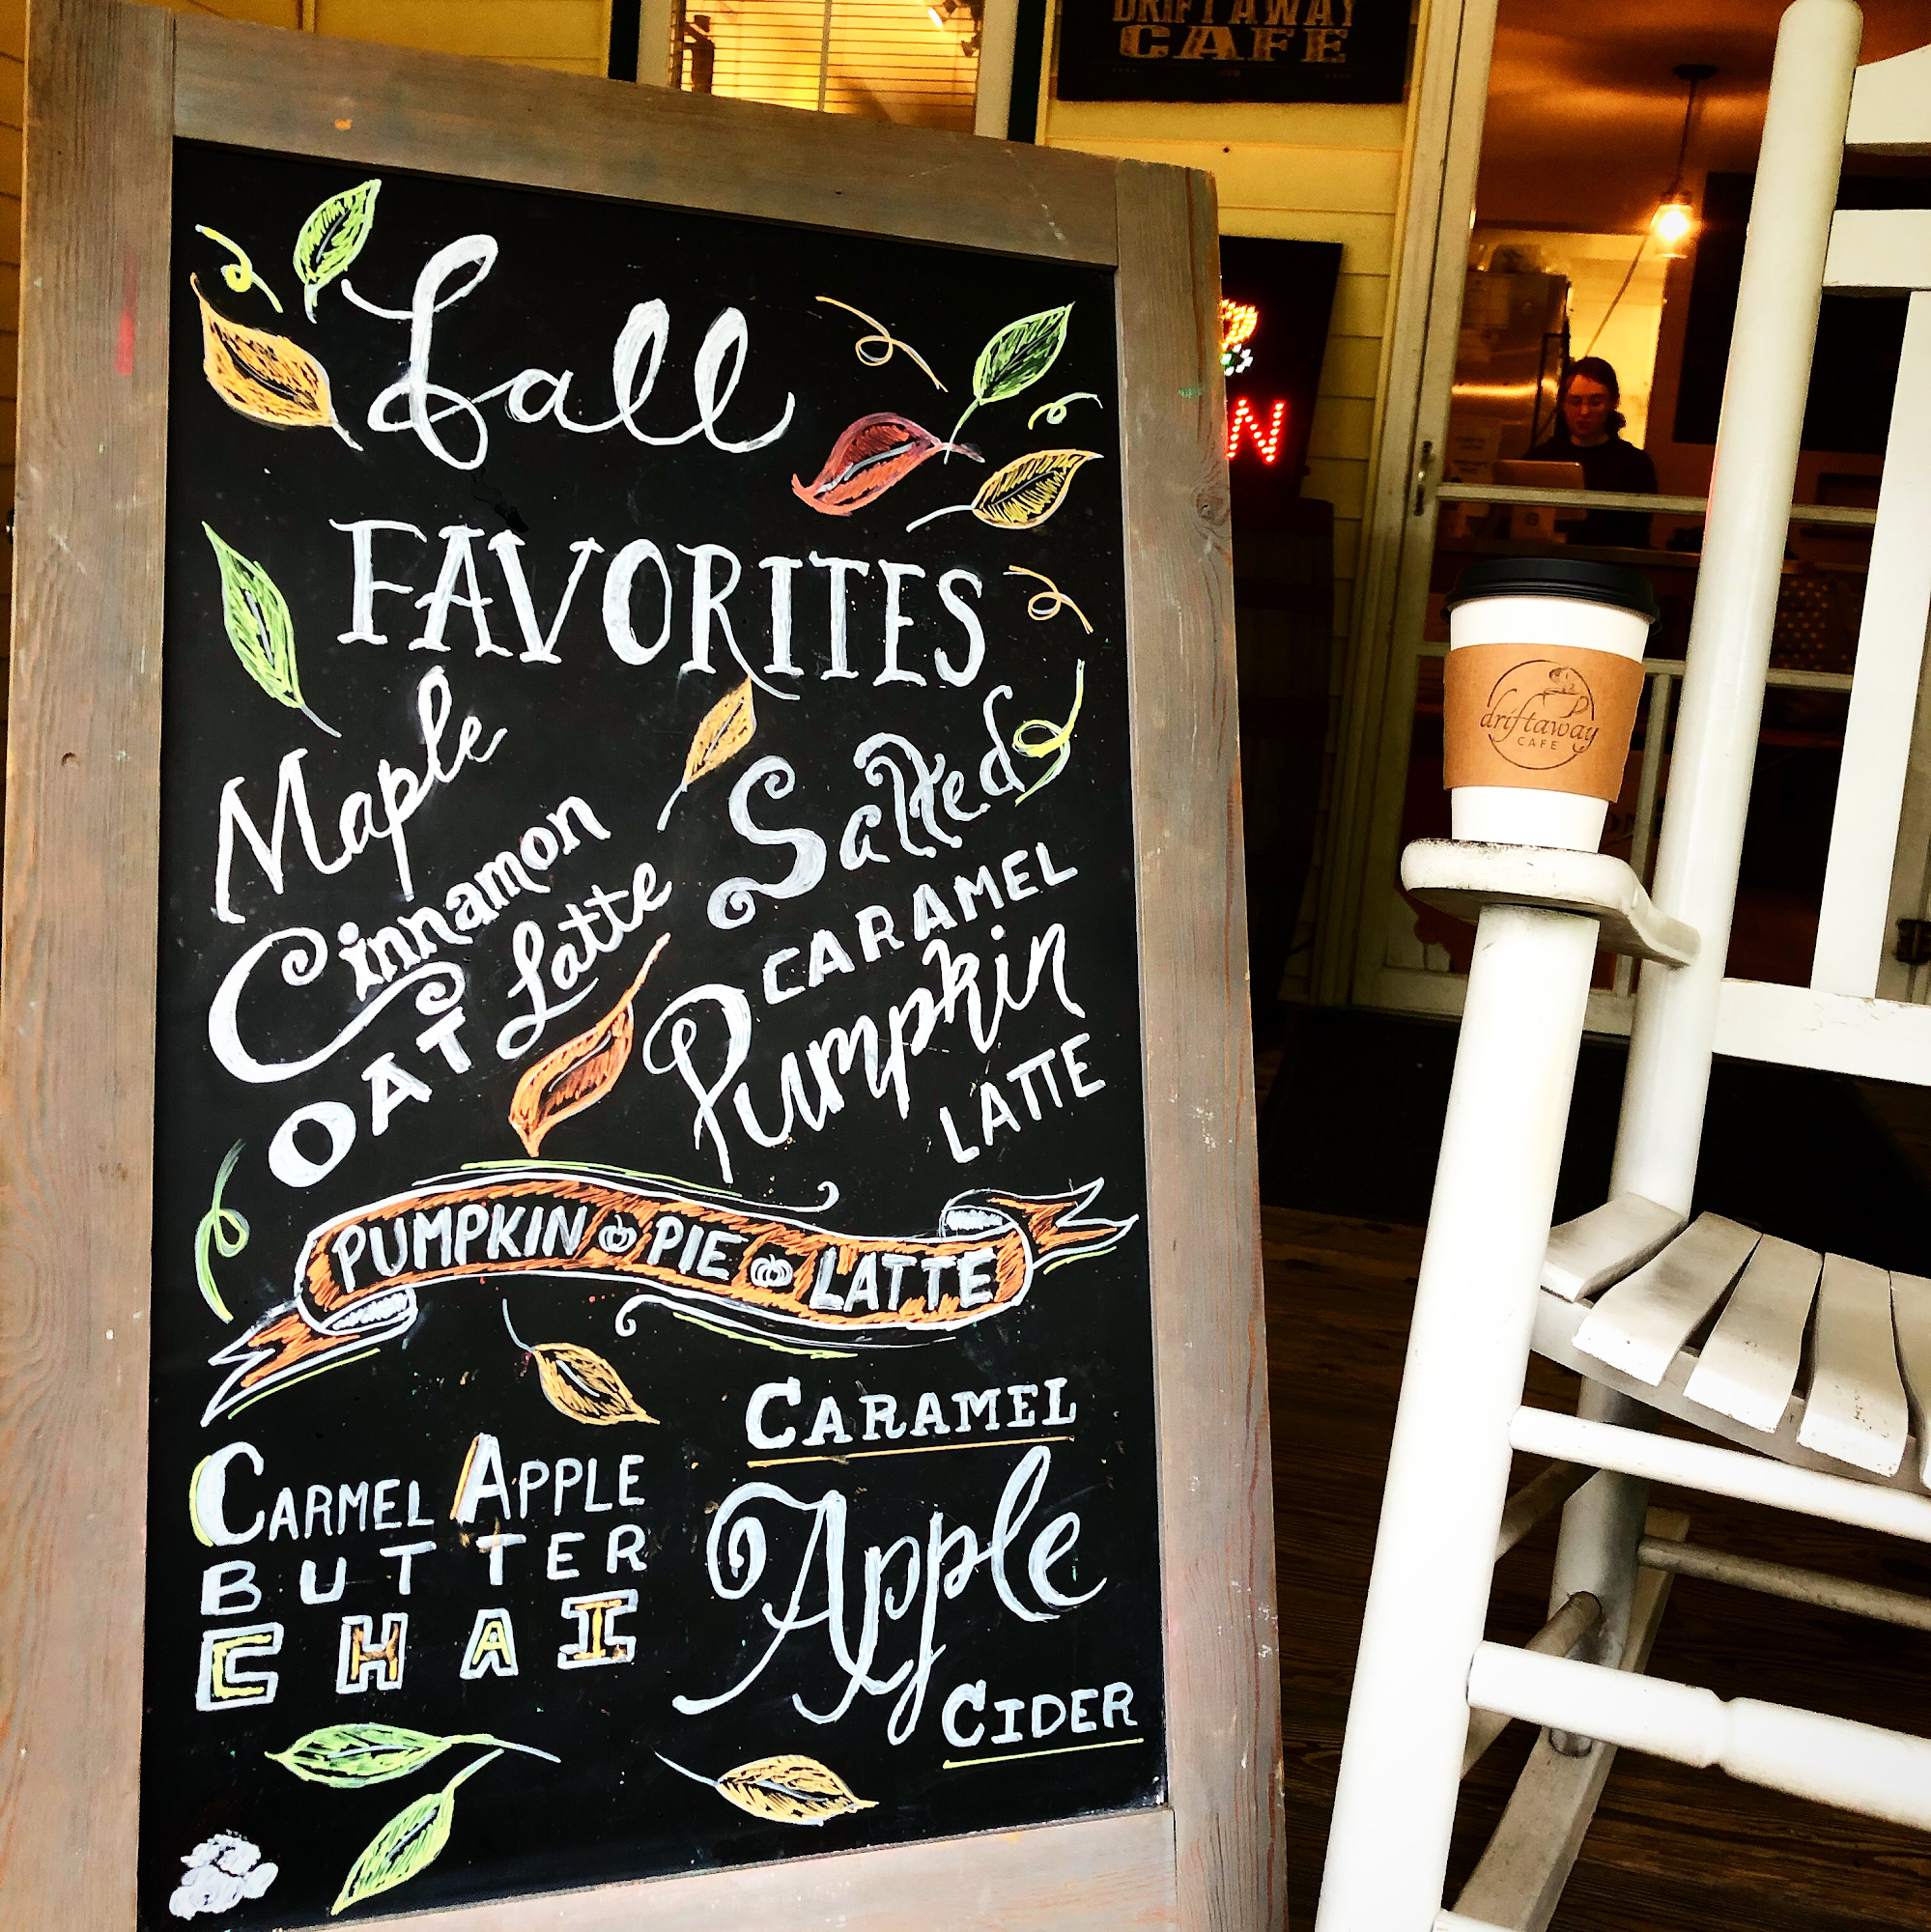 DRIFTAWAY
CAFE
Fall
FAVORITES
Maple
Cinnamon
OAT Latte
Salted
CARAMEL
Pumpkin
LATTE
PUMPKIN PIE LATTE
CARMEL APPLE
BUTTER
CHAI
CARAMEL
Apple
CIDER
N
driftaway
CAFE